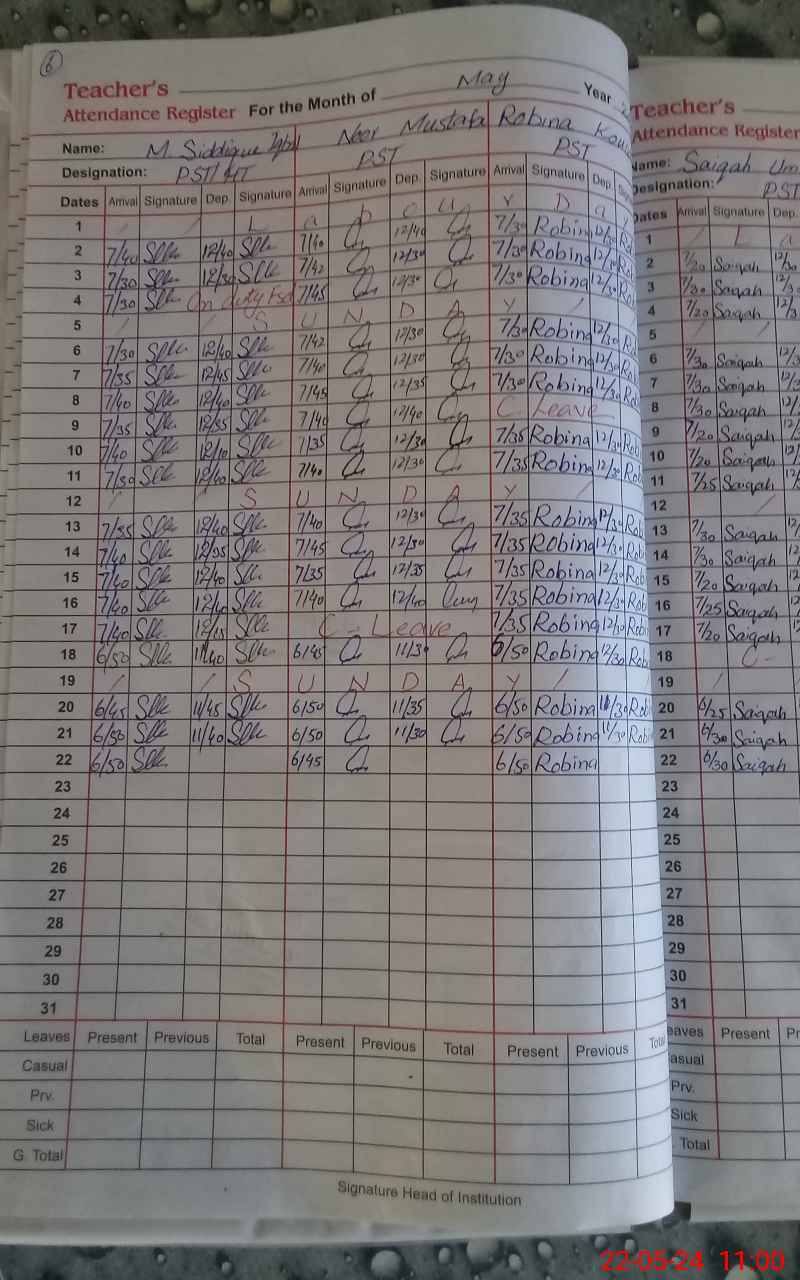 6
Teacher's
Attendance Register For the Month of May Year
Name: M. Siddique Iqbal Noor Mustafa Robina
Designation: PST/HT PST PST
Dates Arrival Signature Dep. Signature Arrival Signature Dep. Signature Arrival Signature Dep.
1 L a b o u r D a y
2 7/40 12/40 7/40 12/40 7/30 Robina 12/30
3 7/30 12/30 7/42 12/30 7/30 Robina 12/30
4 7/30 On duty Fsd 7/45 12/30 7/30 Robina 12/30
5 S U N D A Y
6 7/30 12/40 7/42 12/30 7/30 Robina 12/30
7 7/35 12/45 7/40 12/30 7/30 Robina 12/30
8 7/40 12/40 7/45 12/35 7/30 Robina 12/30
9 7/35 12/35 7/40 12/40 C. Leave
10 7/40 12/40 7/35 12/30 7/35 Robina 12/30
11 7/30 12/40 7/40 12/30 7/35 Robina 12/30
12 S U N D A Y
13 7/35 12/40 7/40 12/30 7/35 Robina 12/30
14 7/40 12/35 7/45 12/30 7/35 Robina 12/30
15 7/40 12/40 7/35 12/35 7/35 Robina 12/30
16 7/40 12/40 7/40 12/40 7/35 Robina 12/30
17 7/40 12/45 C - Leave 7/35 Robina 12/30
18 6/50 11/40 6/45 11/30 6/50 Robina 12/30
19 S U N D A Y
20 6/45 11/45 6/50 11/35 6/50 Robina 11/30
21 6/50 11/40 6/50 11/30 6/50 Robina 11/30
22 6/50 6/45 6/50 Robina
23
24
25
26
27
28
29
30
31
Leaves Present Previous Total Present Previous Total Present Previous Total
Casual
Prv.
Sick
G. Total
Signature Head of Institution
Teacher's
Attendance Register
Name: Saiqah
Designation: PST
Dates Arrival Signature Dep.
1 L a
2 7/20 Saiqah 12/30
3 7/30 Saiqah
4 7/20 Saiqah
5
6 7/30 Saiqah
7 7/30 Saiqah
8 7/30 Saiqah
9 7/20 Saiqah
10 7/20 Saiqah
11 7/25 Saiqah
12
13 7/30 Saiqah
14 7/30 Saiqah
15 7/20 Saiqah
16 7/25 Saiqah
17 7/20 Saiqah
18 C -
19
20 6/25 Saiqah
21 6/30 Saiqah
22 6/30 Saiqah
23
24
25
26
27
28
29
30
31
Leaves Present
Casual
Prv.
Sick
Total
22-05-24 11:00